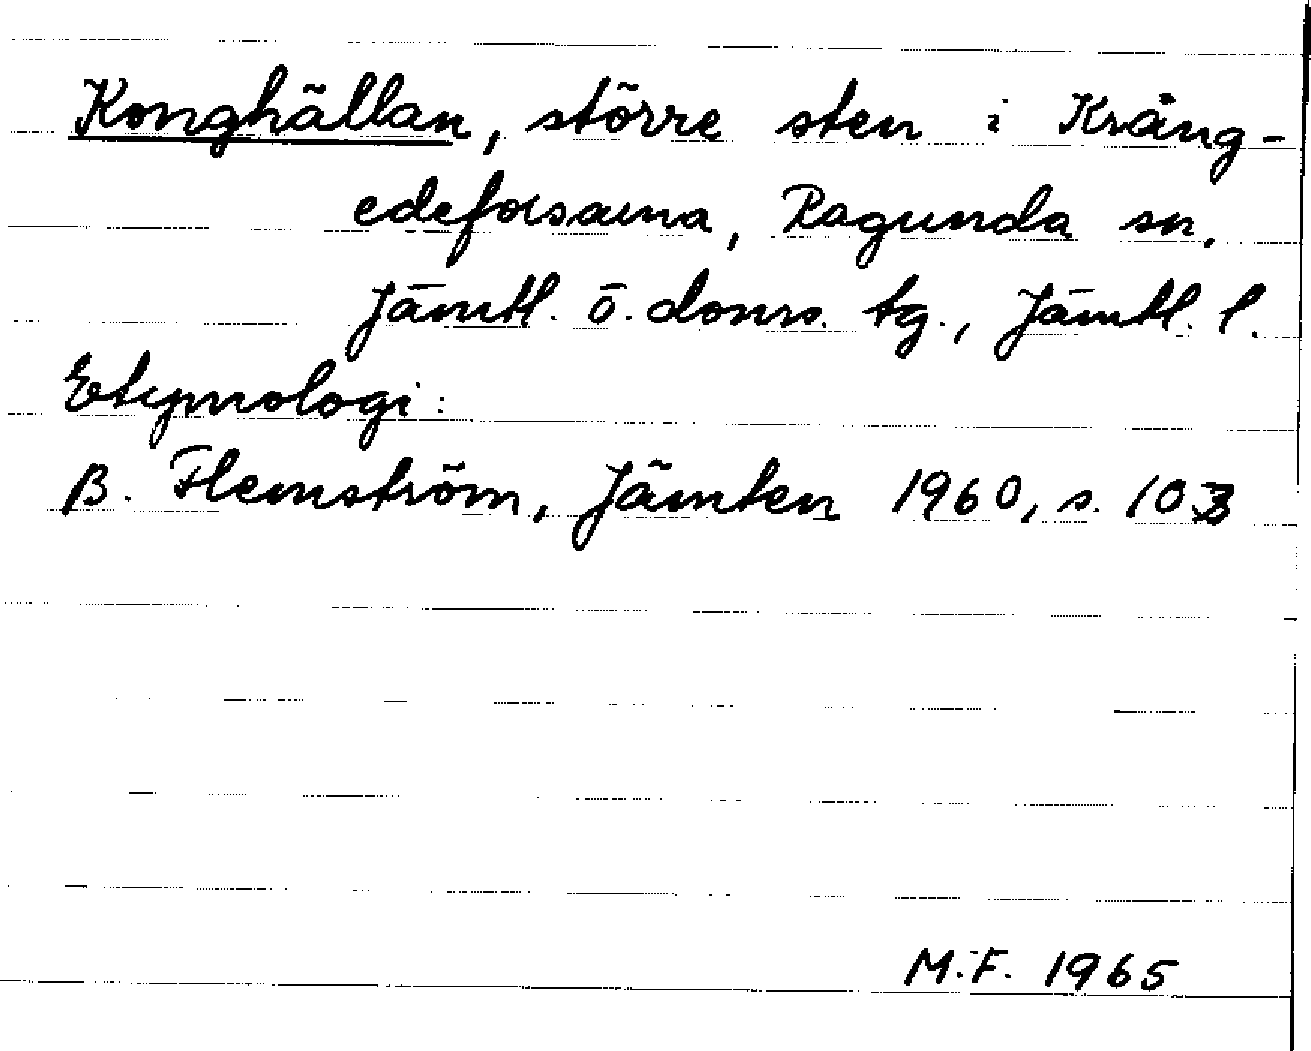 Konghällan, större sten i Kräng-
edeforsarna, Ragunda sn,
Jämtl. ö. doms. tg., Jämtl. l.
Etymologi:
B. Flemström, Jämten 1960, s. 103
M.F. 1965